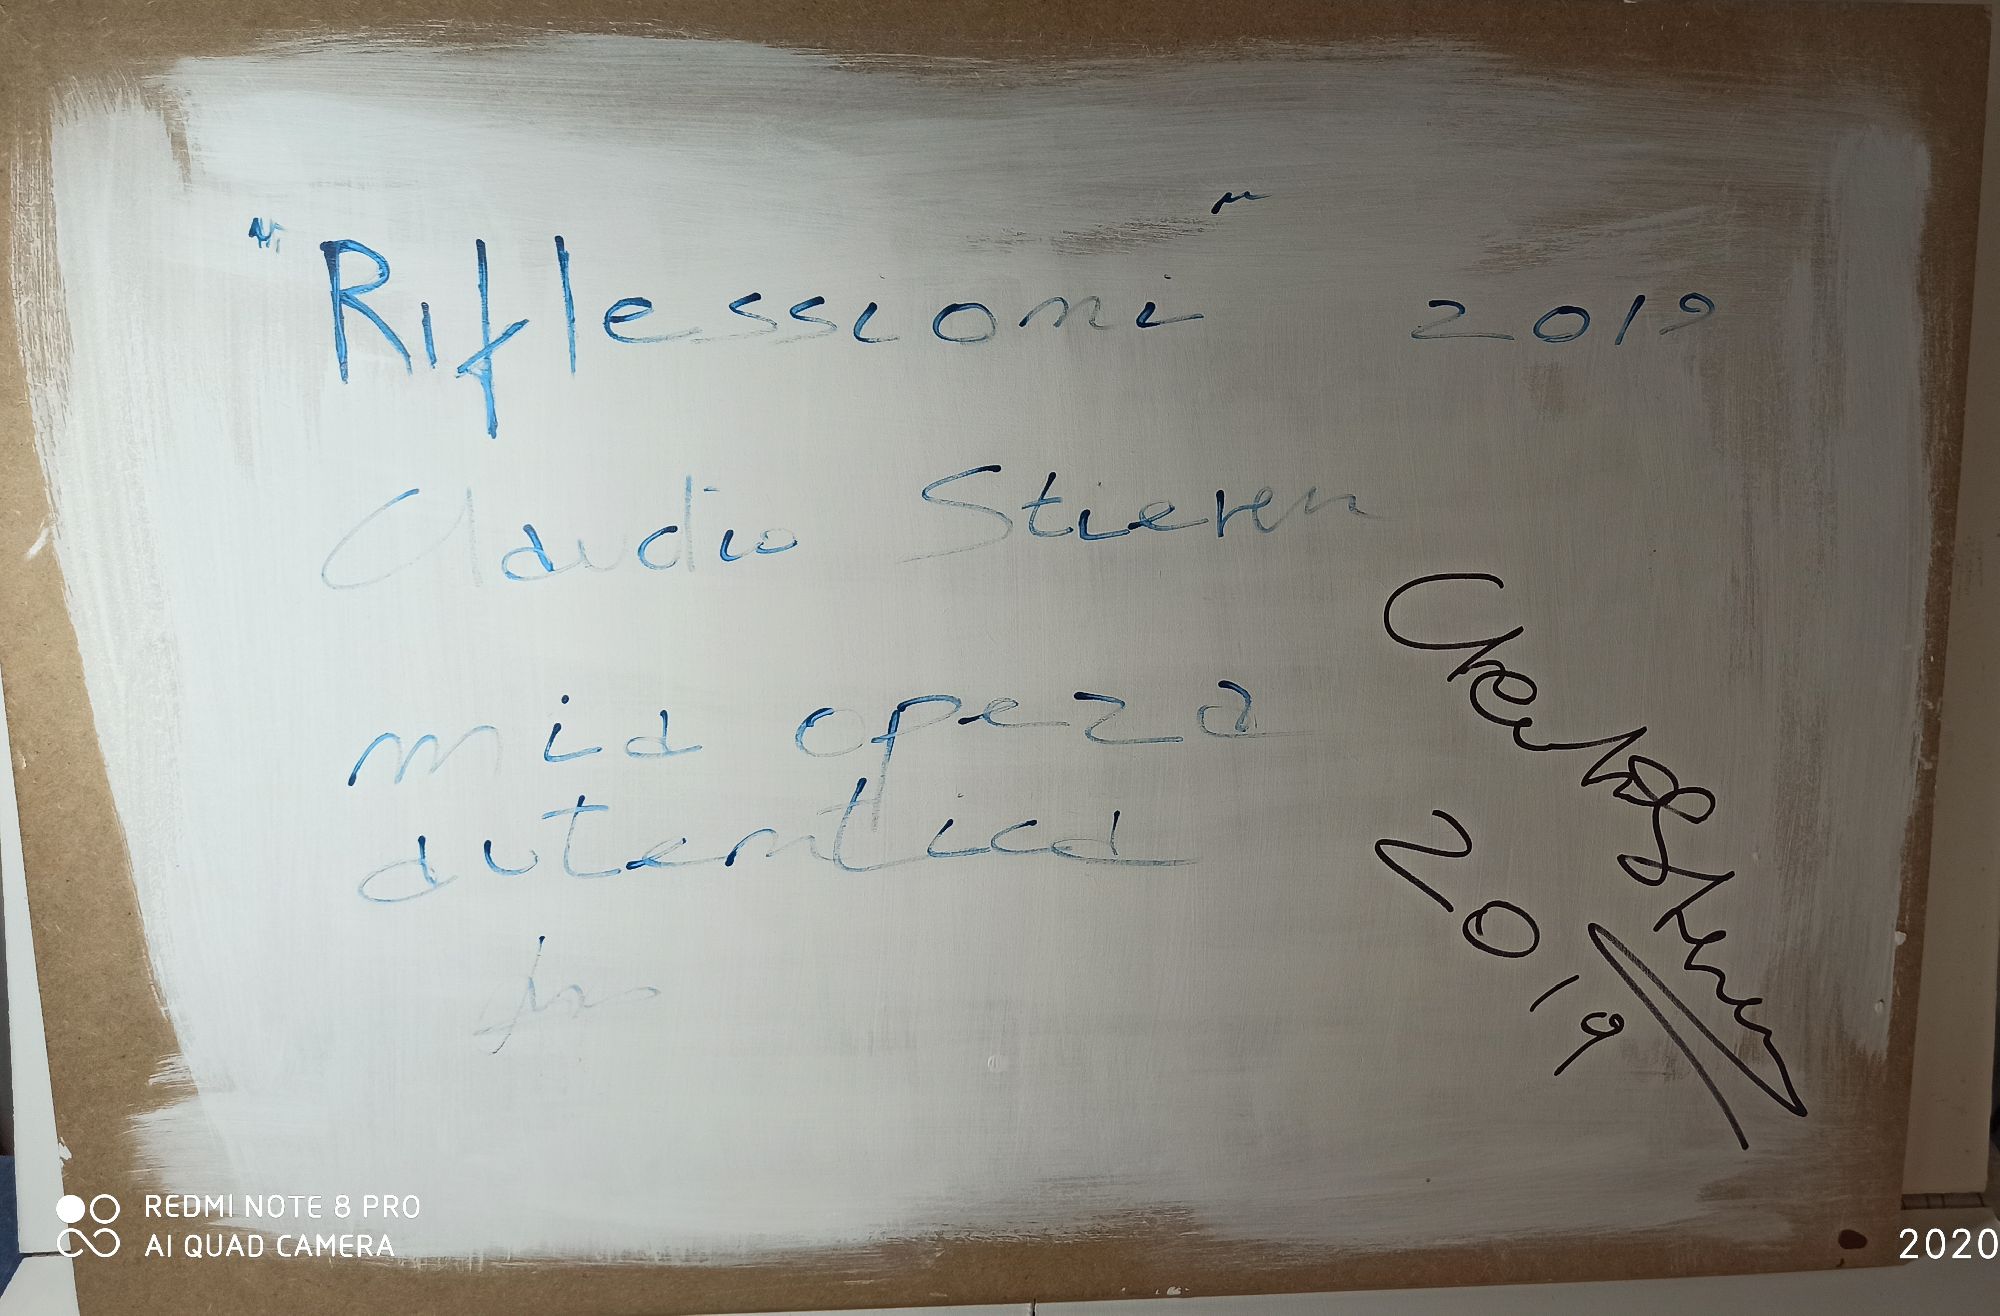 "Riflessioni" 2019
Claudio Stieren
mia opera
autentica
2019
REDMI NOTE 8 PRO
AI QUAD CAMERA
2020